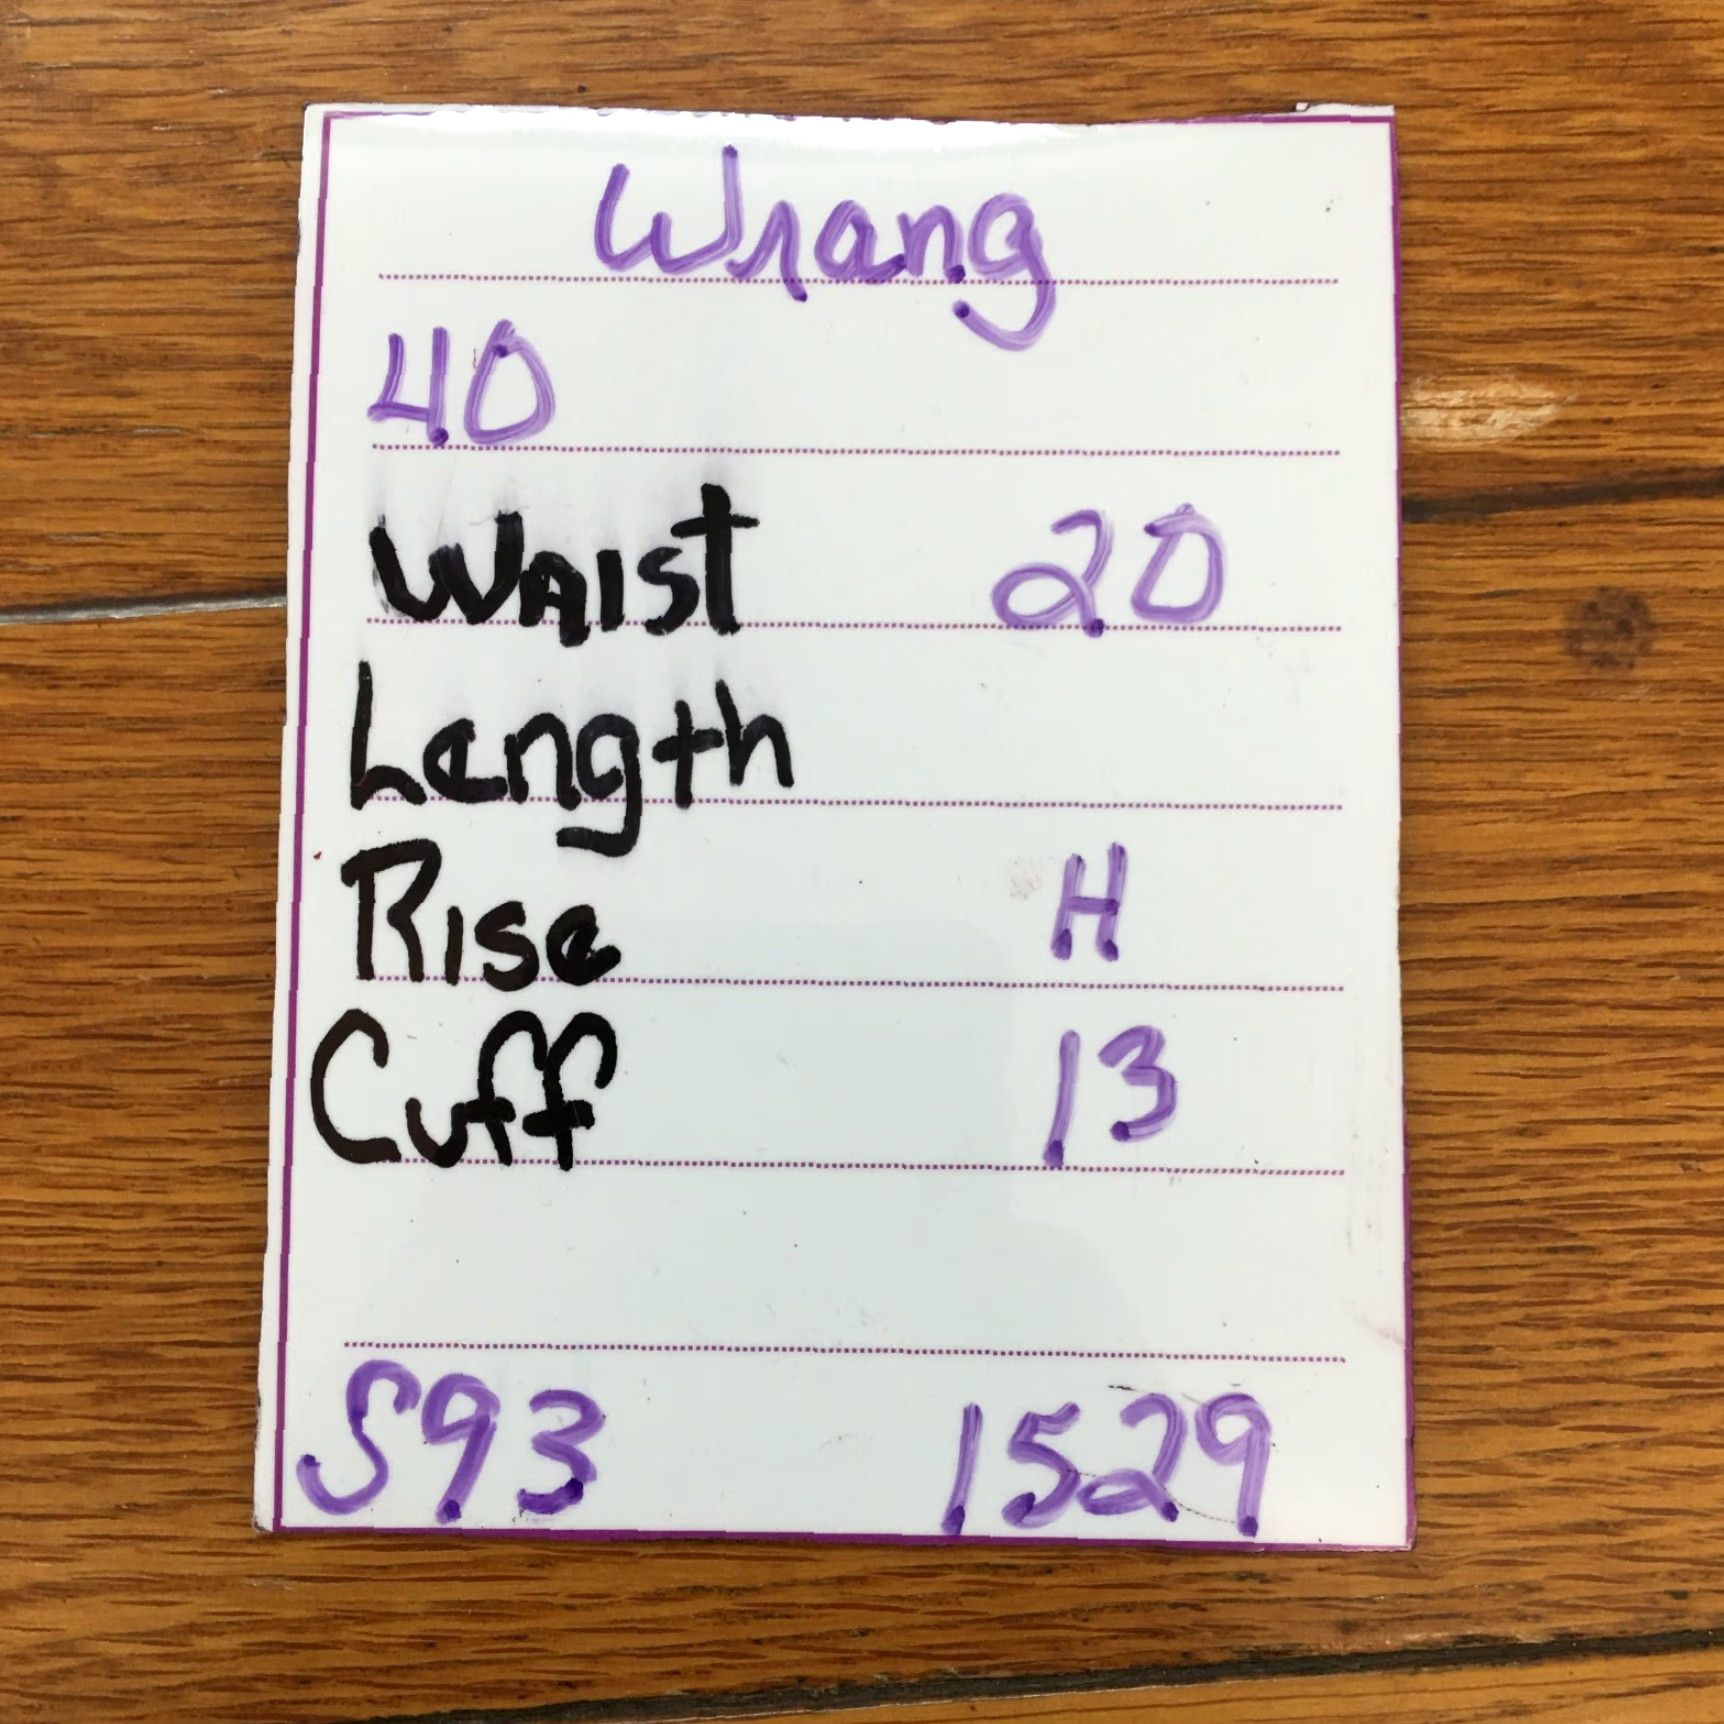 Wrang
40
Waist 20
Length
Rise H
Cuff 13
S93 1529